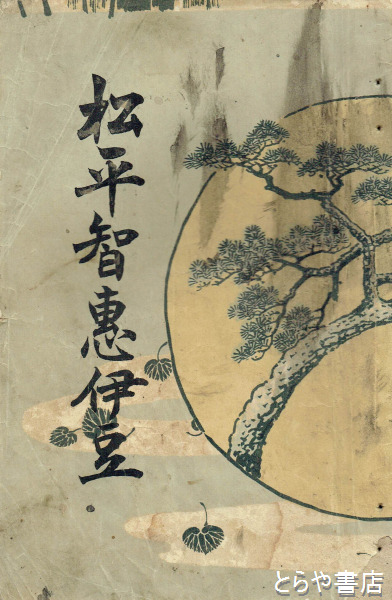 松平智惠伊豆
とらや書店